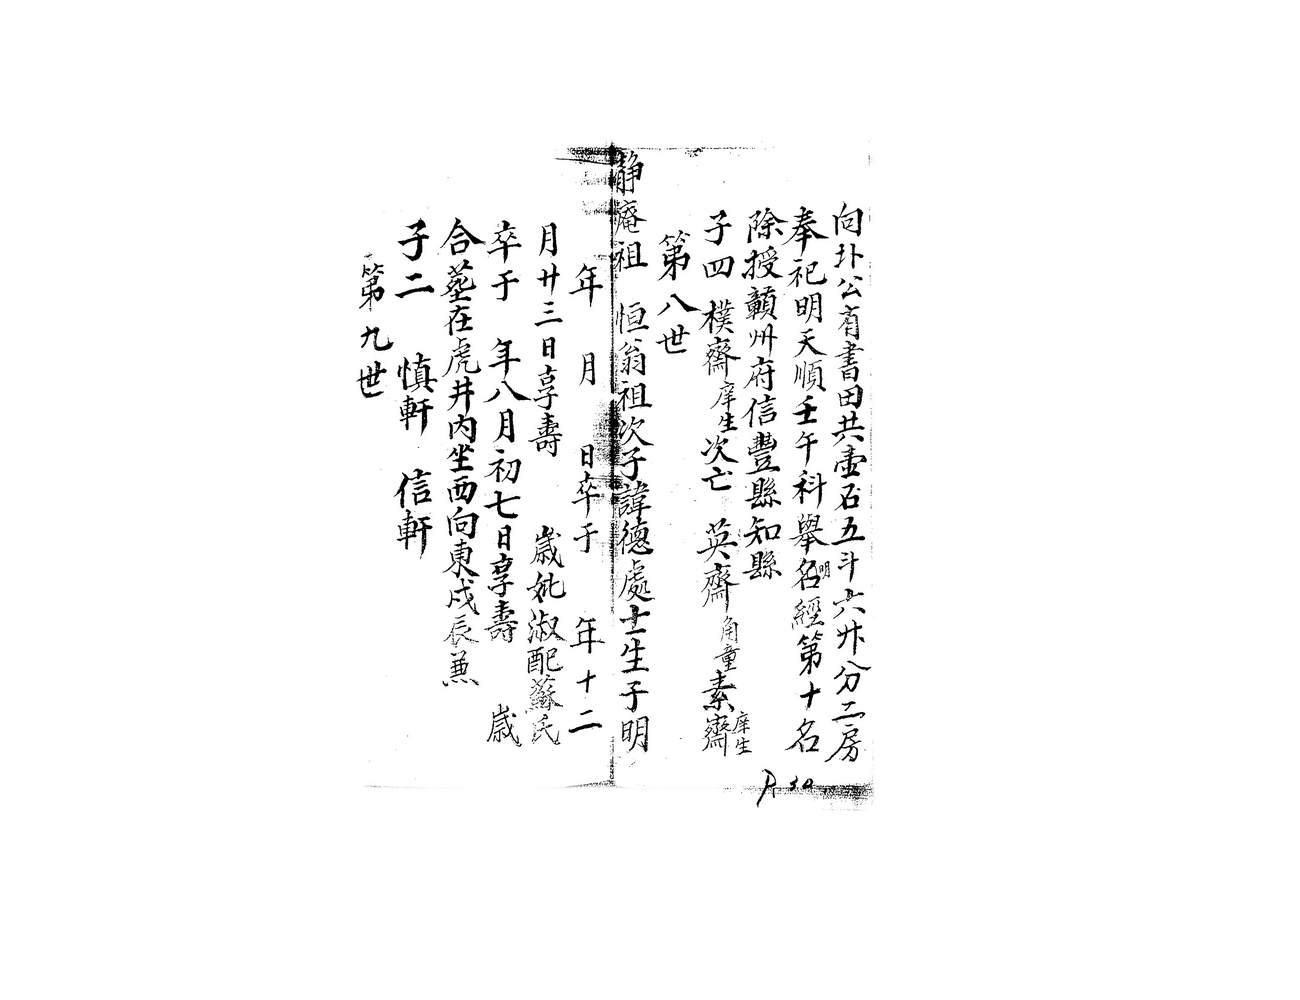 向圤公有書田共壷石五斗六升分二房
奉祀明天順壬午科舉明名經第十名
除授贛州府信豐縣知縣
子四 樸齋庠生次亡 英齋角童素齋庠生
第八世
靜庵祖 恒翁祖次子諱德處士生于明
年 月 日卒于 年十二
月廿三日享壽 歲妣淑配蘇氏
卒于 年八月初七日享壽 歲
合塟在虎井内坐西向東戍辰兼
子二 慎軒 信軒
第九世
P 30